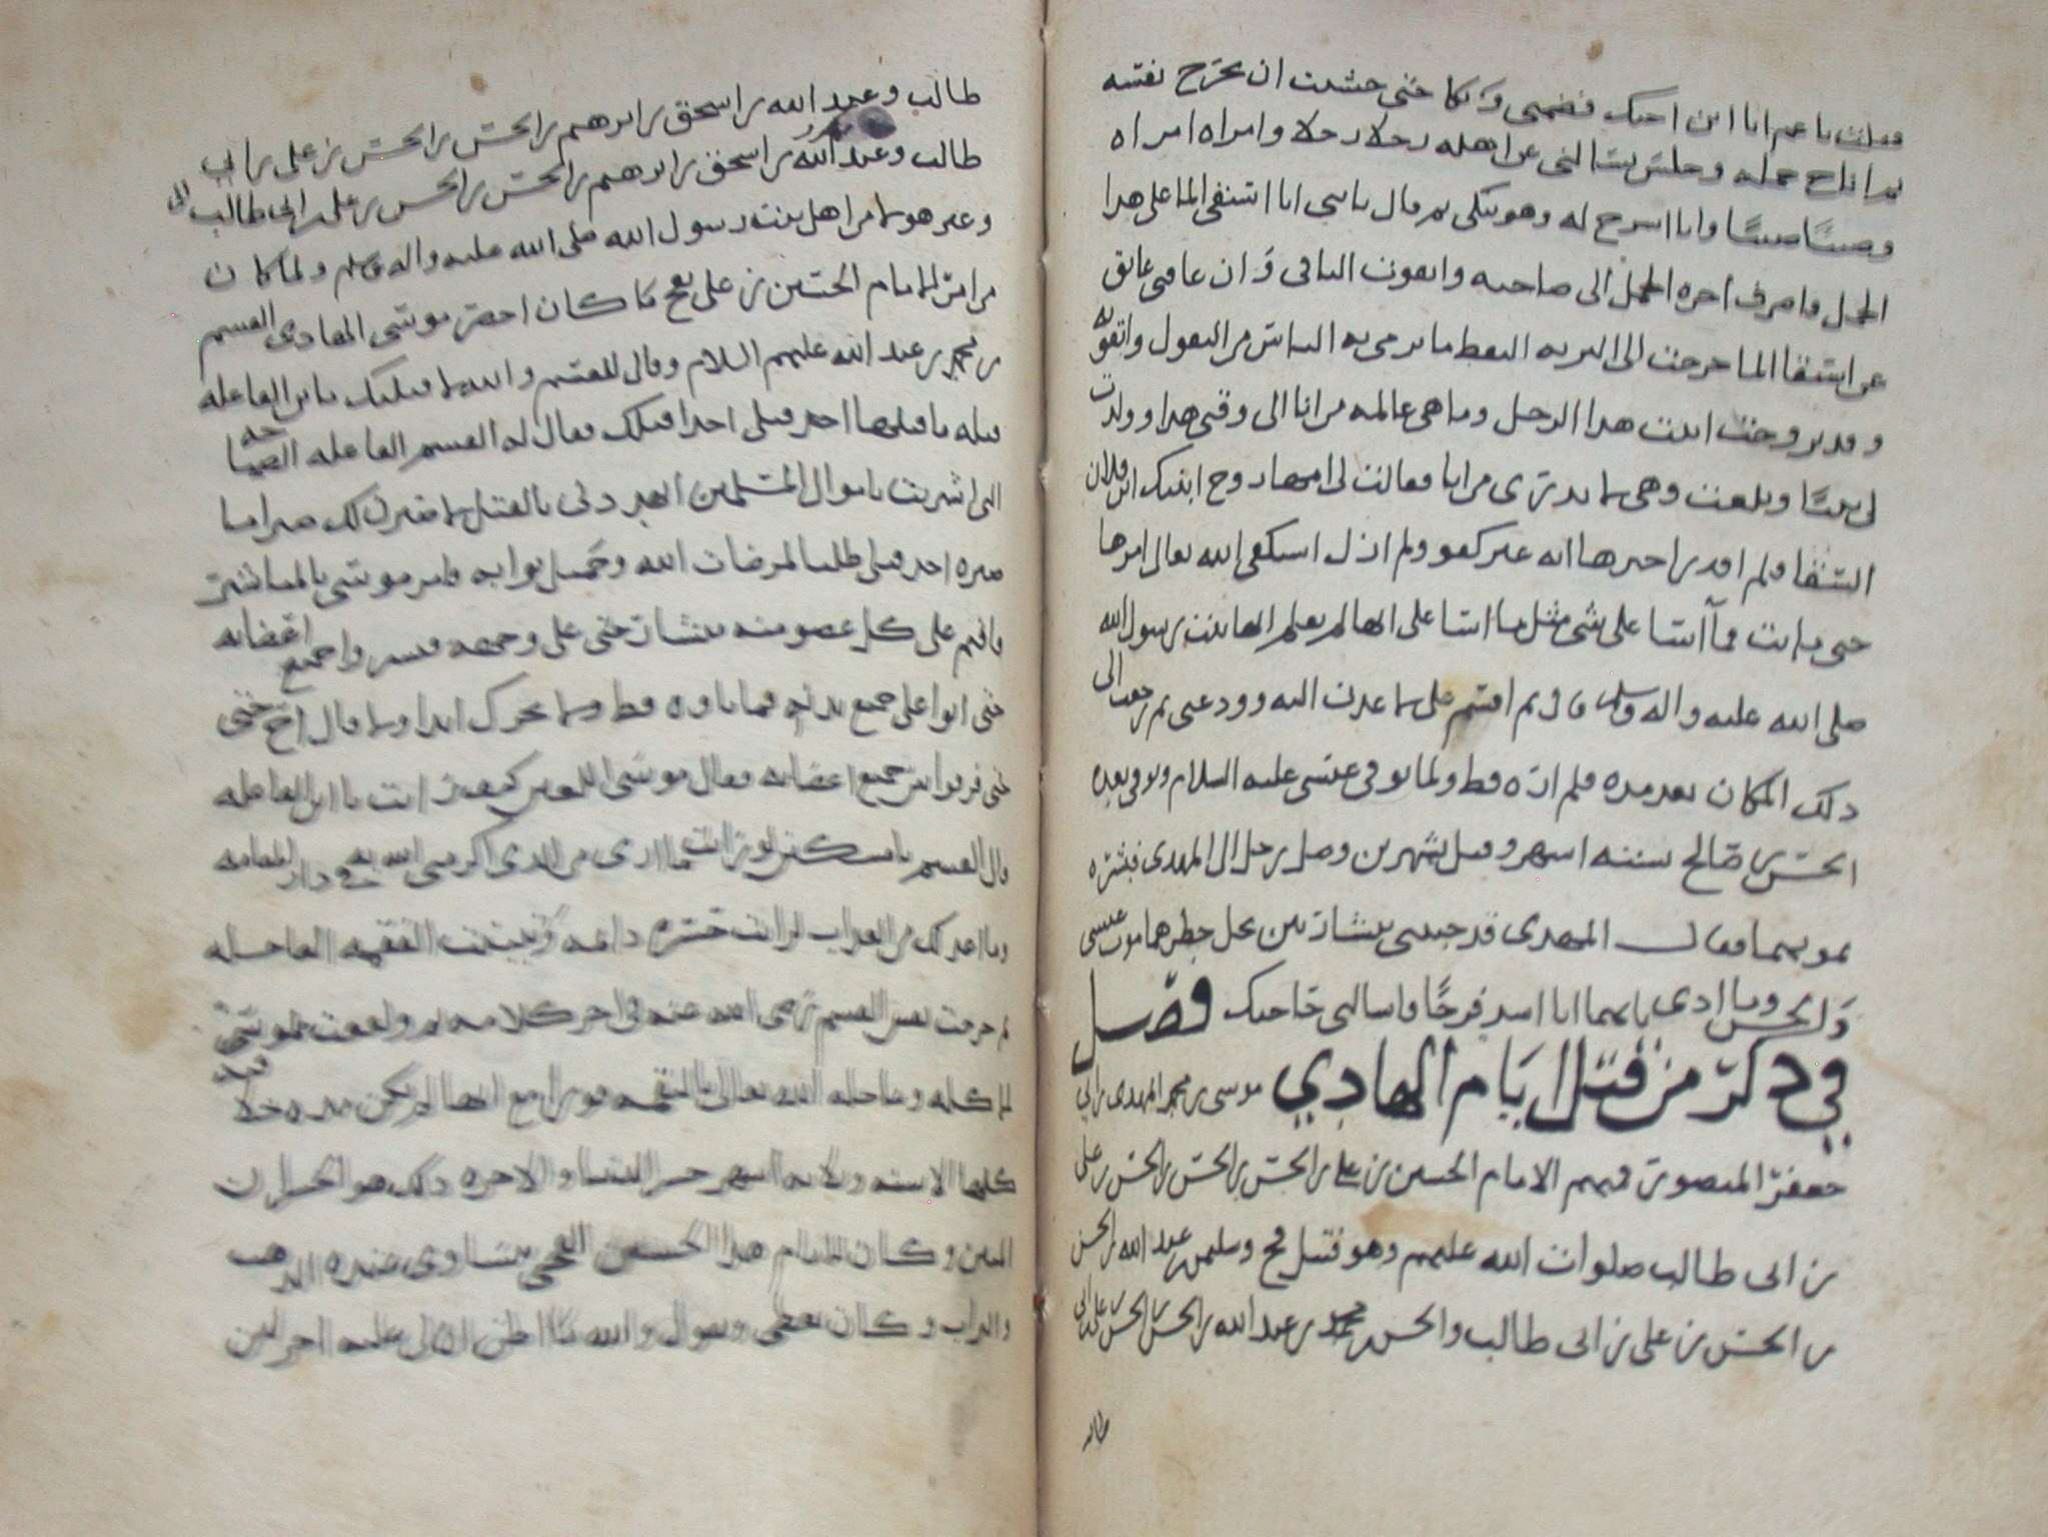 فقلت يا عم انا ابن اخيك فضمني وبكا حتى خشيت ان تخرج نفسه
ثم اناخ جمله وجلس يسالني عن اهله رجلا رجلا وامراه امراه
وصبيًا صبيًا وانا اشرح له وهو يبكي ثم قال يا بني انا استقي الما على هذا
الجمل فاصرف اجره الجمل الى صاحبه واتقوت الباقي وان عاقني عايق
عن استقا الما خرجت الى البريه التقط ما يرمي به الناس من البقول واتقوته
وقد تزوجت ابنت هذا الرجل وما هي عالمه من انا الى وقتي هذا وولدت
لي بنتًا وبلغت وهي لا تدري من انا فقالت لي امها زوج ابنتك ابن فلان
السقا فلم اقدر اخبرها انه غير كفو ولم ازل استكفي الله تعالى امرها
حتى ماتت فما آسا على شي مثل ما اسا على انها لم تعلم انها بنت رسول الله
صلى الله عليه واله وسلم قال ثم اقسم علي لا عدت اليه وودعني ثم رجعت الى
ذلك المكان بعد مده فلم اره قط ولما توفي عيسى عليه السلام وتوفي بعده
الحسن بن صالح بستة اشهر وقيل بشهرين وصل رجل الى المهدي فبشره
بموتهما فقال المهدي قد جيتني ببشارتين يجل خطرهما موت عيسى
والحسن وما ادري بايهما انا اشد فرحًا فاسالني حاجتك فصل
في ذكر من قتل ايام الهادي موسى بن محمد المهدي بن ابي
جعفر المنصور فمنهم الامام الحسين بن علي بن الحسن بن الحسن بن الحسن بن علي
بن ابي طالب صلوات الله عليهم وهو قتيل فخ وسليمن بن عبد الله بن الحسن
بن الحسن بن علي بن ابي طالب والحسن بن محمد بن عبد الله بن الحسن بن الحسن بن علي بن ابي
طالب
طالب وعبد الله بن اسحق بن ابرهيم بن الحسن بن الحسن بن علي بن ابي
طالب وعبد الله بن اسحق بن ابرهيم بن الحسن بن الحسن بن علي بن ابي طالب الى
وغير هولا من اهل بيت رسول الله صلى الله عليه واله وسلم ولما كان
من امر الامام الحسين بن علي بفخ ما كان احضر موسى الهادي القسم
بن محمد بن عبد الله عليهم السلام وقال للقسم والله لاقتلنك يا بن الفاعله
قتله ما قتلها احد قبلي احدا قبلك فقال له القسم الفاعله الصياحه
التي اشريت باموال المسلمين اتهددني بالقتل لاصبرن لك صبرا ما
صبره احد قبلي طلبا لمرضات الله وجميل ثوابه فامر موسى بالمناشير
فاقيم على كل عضو منه منشار حتى على وجهه فنشروا جميع اعضايه
حتى اتوا على جميع بدنه فما تاوه قط ولا تحرك ابدا ولا قال اخ حتى
حتى فرقوا بين جميع اعضايه فقال موسى اللعين كيف رايت يا ابن الفاعله
قال القسم يا مسكين لو رايت ما ارى من الذي اكرمني الله به في دار المقامه
وما اعد لك من العذاب لرايت حسره دايمه وتبينت الفضيحه العاجله
ثم خرجت نفس القسم رضي الله عنه في اخر كلامه
كلها الا سنه وثلاثه اشهر خسر الدنيا والاخره ذلك هو الخسران
المبين وكان الامام هذا الحسين الفخي يتساوى عنده الذهب
والتراب وكان يعطي ويقول والله ما اظن ان لي عليه اجر لين